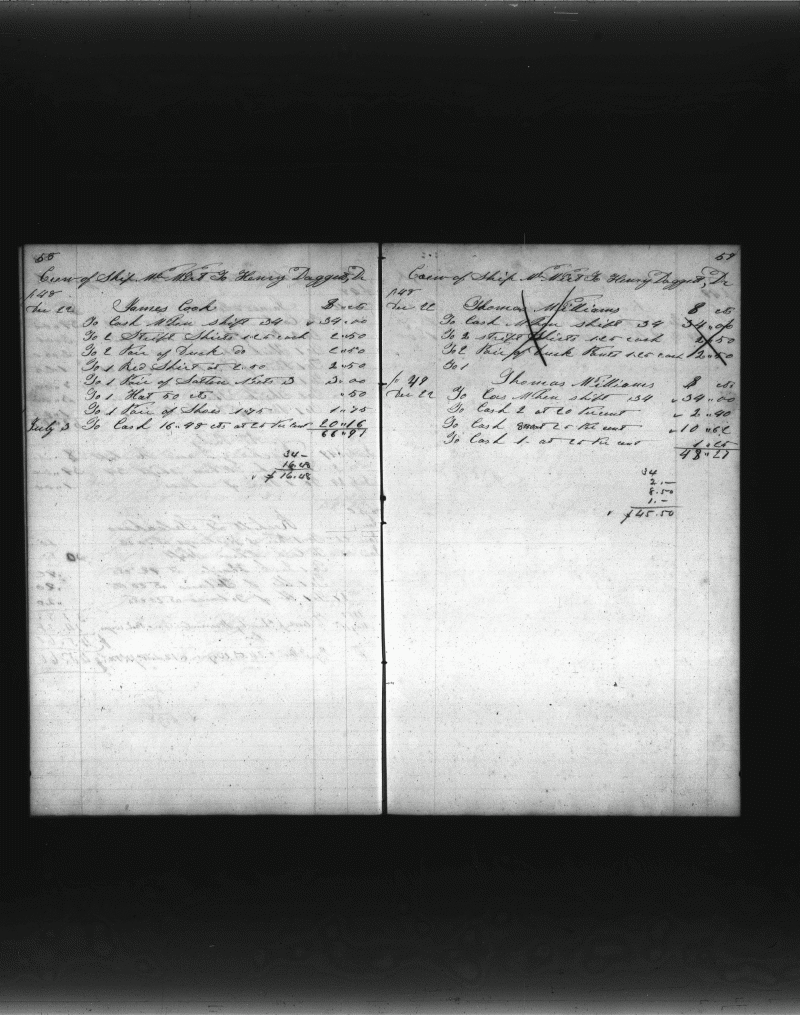 55
Crew of Ship Wm Wirt To Henry Daggett, Dr
p 48
Dec 22 James Cook $ cts
To Cash When shift 34 34.00
To 2 Stript Shirts 1.25 each 2.50
To 2 Pair of Duck Do 2.50
To 1 Red Shirt at 2.50 2.50
To 1 Pair of 3 3.00
To 1 Hat 50 cts .50
To 1 Pair of Shoes 1.75 1.75
July 3 To Cash 16.48 cts at 25 Per cent 20.16
66.91
34-
16.48
16.48
59
Crew of Ship Wm Wirt To Henry Daggett, Dr
p 48
Dec 22 Thomas Williams $ cts
To Cash When shift 34 34.00
To 2 Stript Shirts 1.25 each 2.50
To 2 Pair of Duck Pants 1.25 each 2.50
To 1
p 49 Thomas Williams $ cts
Dec 22 To Cas When shift 34 34.00
To Cash 2 at 20 Per cent 2.40
To Cash at 25 Per cent 10.62
To Cash 1. at 25 Per cent 1.25
48.27
34
2.-
8.50
1.-
45.50